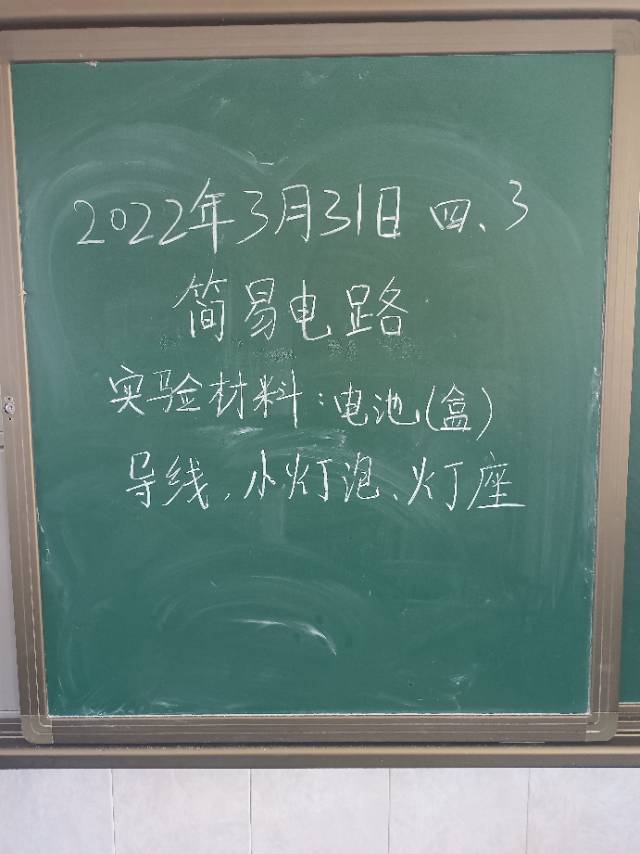 2022年3月31日 四、3
简易电路
实验材料：电池(盒)
导线、小灯泡、灯座